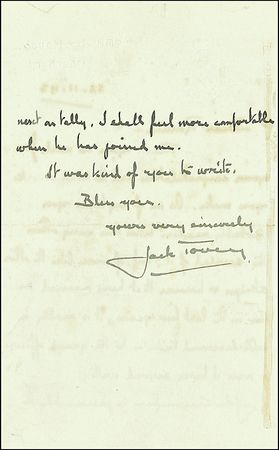 tally. I shall feel more comfortable
when he has joined me.
It was kind of you to write.
Bless you.
yours very sincerely
Jack Tovey